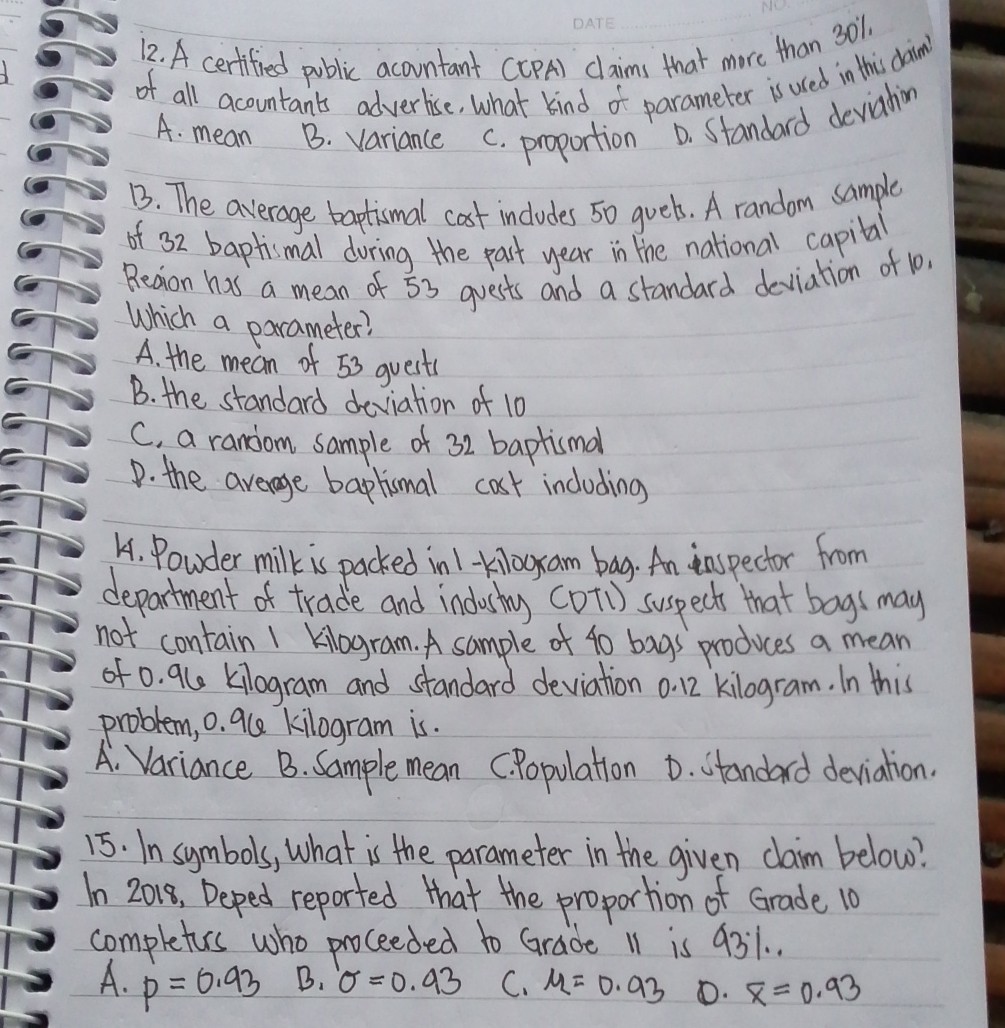 DATE
NO.
12. A certified public acountant (CPA) claims that more than 30%
of all acountants advertise. What kind of parameter is used in this claim?
A. mean B. Variance C. proportion D. Standard deviation
13. The average baptismal cost includes 50 guets. A random sample
of 32 baptismal during the past year in the national capital
Region has a mean of 53 guests and a standard deviation of 10.
Which a parameter?
A. the mean of 53 guests
B. the standard deviation of 10
C. a random sample of 32 baptismal
D. the average baptismal cost including
14. Powder milk is packed in 1-kilogram bag. An inspector from
department of trade and industry (DTI) suspects that bags may
not contain 1 kilogram. A sample of 40 bags produces a mean
of 0.96 kilogram and standard deviation 0.12 kilogram. In this
problem, 0.96 kilogram is.
A. Variance B. Sample mean C. Population D. Standard deviation.
15. In symbols, What is the parameter in the given claim below?
In 2018, Deped reported that the proportion of Grade 10
completers who proceeded to Grade 11 is 93%..
A. p = 0.93 B. σ = 0.93 C. μ = 0.93 D. x̄ = 0.93